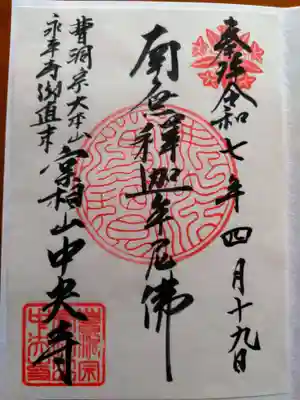 奉拝 令和七年四月十九日
南無釋迦牟尼佛
曹洞宗大本山
永平寺御直末
常栢山中央寺